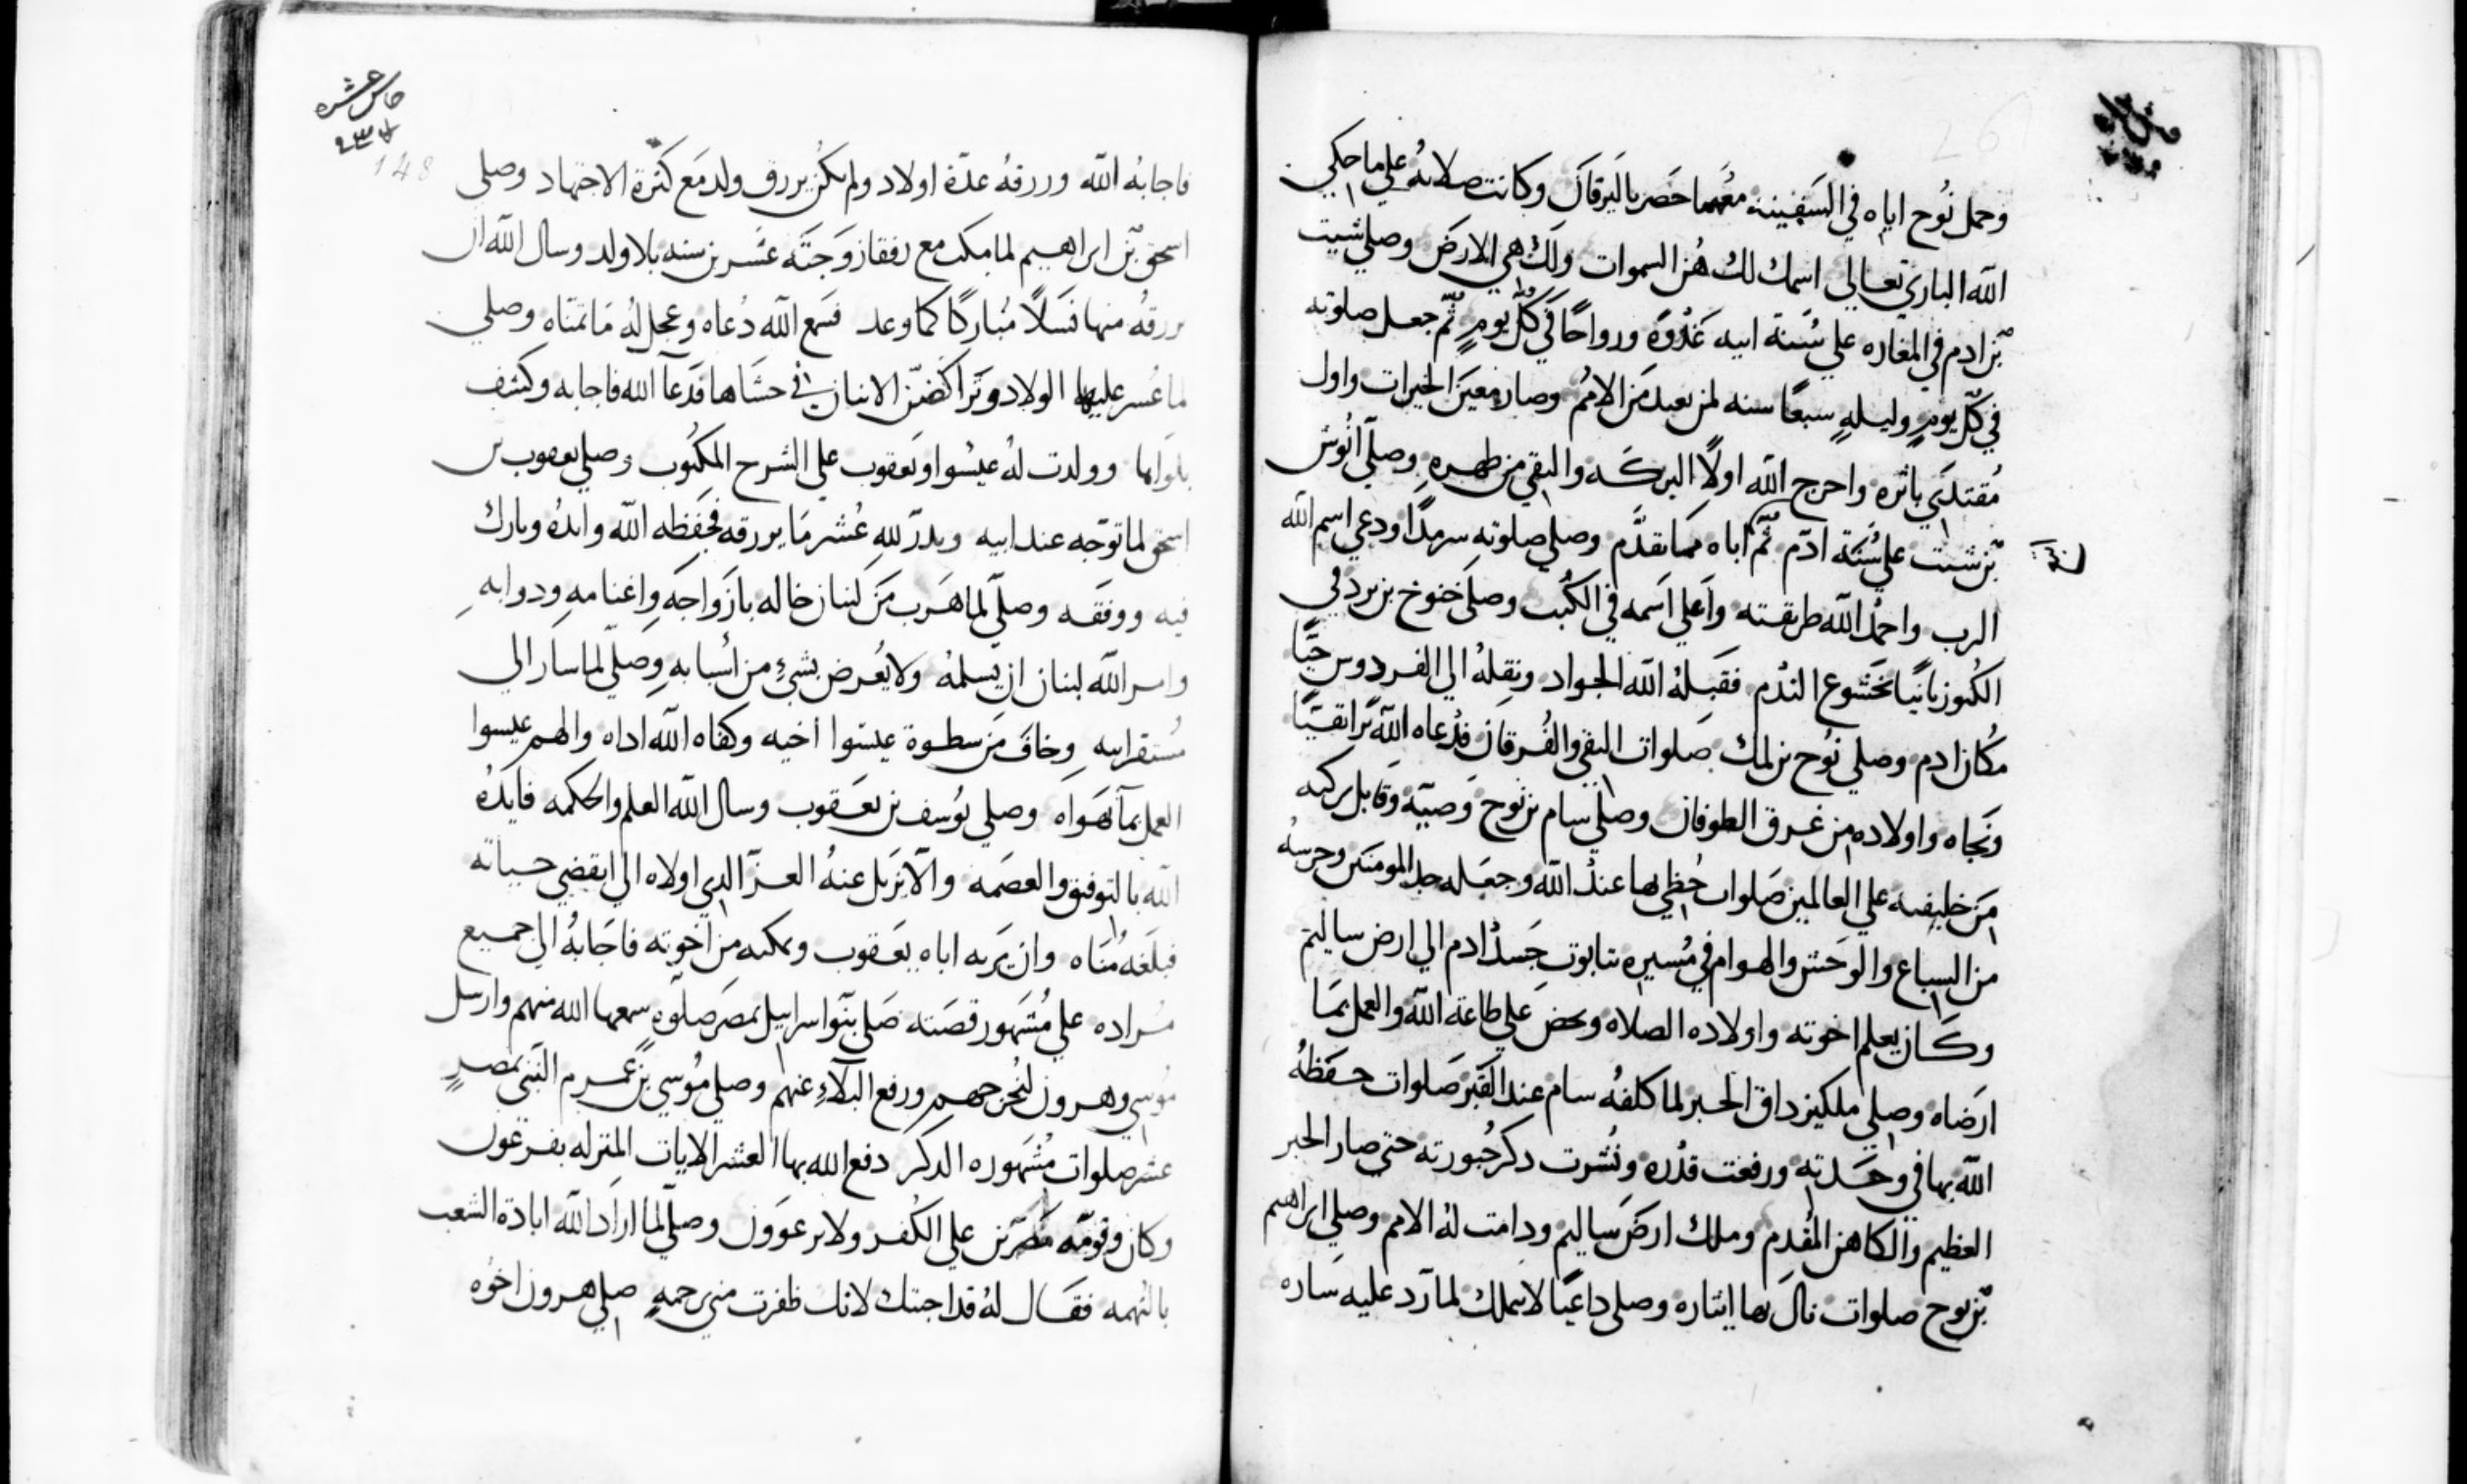 وحمل نوح اياه في السفينه معهما حضر بالبرقان وكانت صلاته علي ما حكي
الله الباري تعالي اسمك لك هن السموات ولك هي الارض وصلي شيت
بن ادم في المغاره علي سنة ابيه غدوة ورواحا في كل يوم ثم جعل صلوته
في كل يوم وليله سبعا سنه لمن بعده من الامم وصار معين الخيرات واول
مقتدي باثره واخرج الله اولا البركه والتقي من ظهره وصلي انوش
بن شيت علي سنة ادم ثم اباه كما تقدم وصلي صلوته سرمدا ودعي اسم الله
الرب واحمد الله طريقته واعلي اسمه في الكتب وصلي خنوخ بن يرد في
الكنوز بانيا بخشوع الندم فقبله الله الجواد ونقله الي الفردوس حيا
مكان ادم وصلي نوح بن لمك صلوات التقي والفرقان فدعاه الله برا تقيا
ونجاه واولاده من غرق الطوفان وصلي سام بن نوح وصيه وقابل بركته
من خليفته علي العالمين صلوات حظي بها عند الله وجعله جد المومنين وحرسه
من السباع والوحش والهوام في مسيره بتابوت جسد ادم الي ارض ساليم
وكان يعلم اخوته واولاده الصلاه ويحض علي طاعة الله والعمل بما
ارضاه وصلي ملكيزداق الحبر لما كلفه سام عند القبر صلوات حفظه
الله بها في وحدته ورفعت قدره ونشرت ذكر حبورته حتي صار الحبر
العظيم والكاهن المقدم وملك ارض ساليم ودامت له الامم وصلي ابراهيم
بن نوح صلوات نال بها ايثاره وصلي داعيا لابيملك لما رد عليه ساره
فاجابه الله ورزقه عدة اولاد ولم يكن يرزق ولد مع كثرة الاجتهاد وصلي
اسحق بن ابراهيم لما مكث مع رفقا زوجته عشرين سنه بلا ولد وسال الله ان
يرزقه منها نسلا مباركا كما وعد فسمع الله دعاه وعجل له ما تمناه وصلي
لما عسر عليها الولاد وتراكض الاثنان في حشاها فدعا الله فاجابه وكشف
بلواها وولدت له عيسوا ويعقوب علي الشرح المكتوب وصلي يعقوب بن
اسحق لما توجه عند ابيه ونذر لله عشر ما يرزقه فحفظه الله وايده وبارك
فيه ووفقه وصلي لما هرب من لبنان خاله بازواجه واغنامه ودوابه
وامر الله لبنان ان يسلمه ولا يعرض بشئ من اسبابه وصلي لما سار الي
مستقر ابيه وخاف من سطوة عيسوا اخيه وكفاه الله اداه والهم عيسوا
العمل بما يهواه وصلي يوسف بن يعقوب وسال الله العلم والحكمه فايده
الله بالتوفيق والعصمه والا يزيل عنه العز الدي اولاه الي انقضي حياته
فبلغه مناه وان يريه اباه يعقوب ويمكنه من اخوته فاجابه الي جميع
مراده علي مشهور قصته صلي بنوا اسرايل بمصر صلوه سمعها الله منهم وارسل
موسي وهرون ليخرجهم ورفع البلاء عنهم وصلي موسي بن عمرم النبي بمصر
عشر صلوات مشهوره الدكر دفع الله بها العشر الايات المنزله بفرعون
وكان وقومه مصرين علي الكفر ولا يرعوون وصلي لما اراد الله ابادة الشعب
بالتهمه فقال له قد اجبتك لانك ظفرت مني برحمه صلي هرون اخوه
148